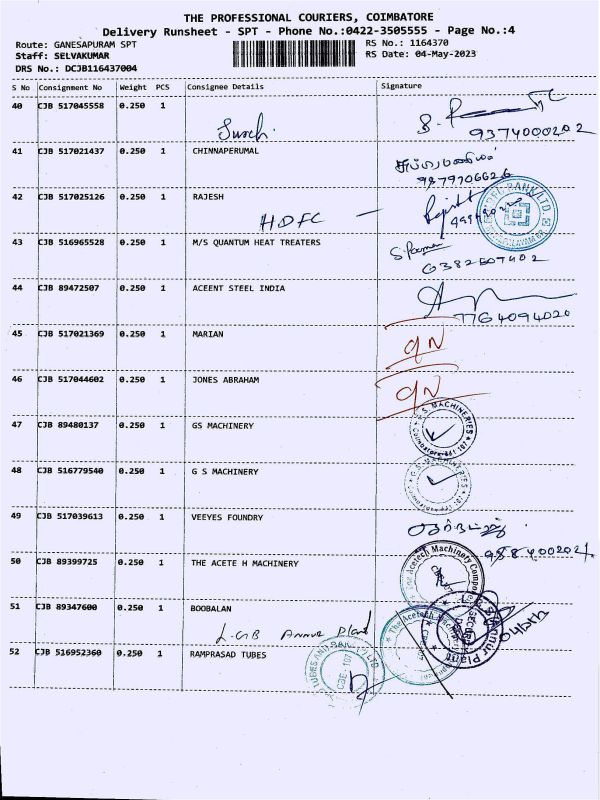 THE PROFESSIONAL COURIERS, COIMBATORE
Delivery Runsheet - SPT - Phone No.:0422-3505555 - Page No.:4
Route: GANESAPURAM SPT RS No.: 1164370
Staff: SELVAKUMAR RS Date: 04-May-2023
DRS No.: DCJB116437004
S No Consignment No Weight PCS Consignee Details Signature
40 CJB 517045558 0.250 1
9374000202
41 CJB 517021437 0.250 1 CHINNAPERUMAL
42 CJB 517025126 0.250 1 RAJESH
HDFC -
43 CJB 516965528 0.250 1 M/S QUANTUM HEAT TREATERS
6382507402
44 CJB 89472507 0.250 1 ACEENT STEEL INDIA
7764094020
45 CJB 517021369 0.250 1 MARIAN
46 CJB 517044602 0.250 1 JONES ABRAHAM
47 CJB 89480137 0.250 1 GS MACHINERY
G.S. MACHINERIES
48 CJB 516779540 0.250 1 G S MACHINERY
49 CJB 517039613 0.250 1 VEEYES FOUNDRY
50 CJB 89399725 0.250 1 THE ACETE H MACHINERY
The Acetech Machinery
51 CJB 89347600 0.250 1 BOOBALAN
Plant
The Acetech Machinery
52 CJB 516952360 0.250 1 RAMPRASAD TUBES